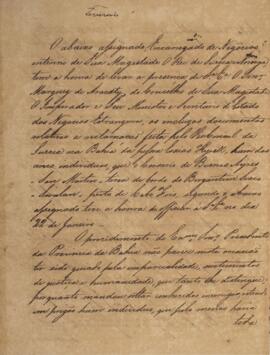 O abaixo assignado, Encarregado de Negocios
interino de Sua Magestade O Rei de Suecia e Noruega
tem a honra de levar a presença de S. Ex.ª O Senr.
Marquez de Aracaty do Conselho de Sua Magestade
O Imperador e Seu Ministro e Secretario de Estado
dos Negocios Estrangeiros, os inclusos documentos
relativos a reclamação feita pelo Consul da
Suecia na Bahia da
onze individuos, que o Corsario de Buenos Ayres
San Martin, tirou de bordo do Bergantim Sueco
perto de Cabo Frio, segundo o abaixo
assignado teve a honra de officiar a S. Ex.ª no dia
22 de Janeiro.
O procedimento do Exmo. Snr. Presidente
da Provincia da Bahia não parece nesta occasião
ter sido guiado pela imparcialidade, sentimentos
de justiça e humanidade que tanto lhe distinguem,
porquanto mandou soltar
individuos, que pelo mesmo havia